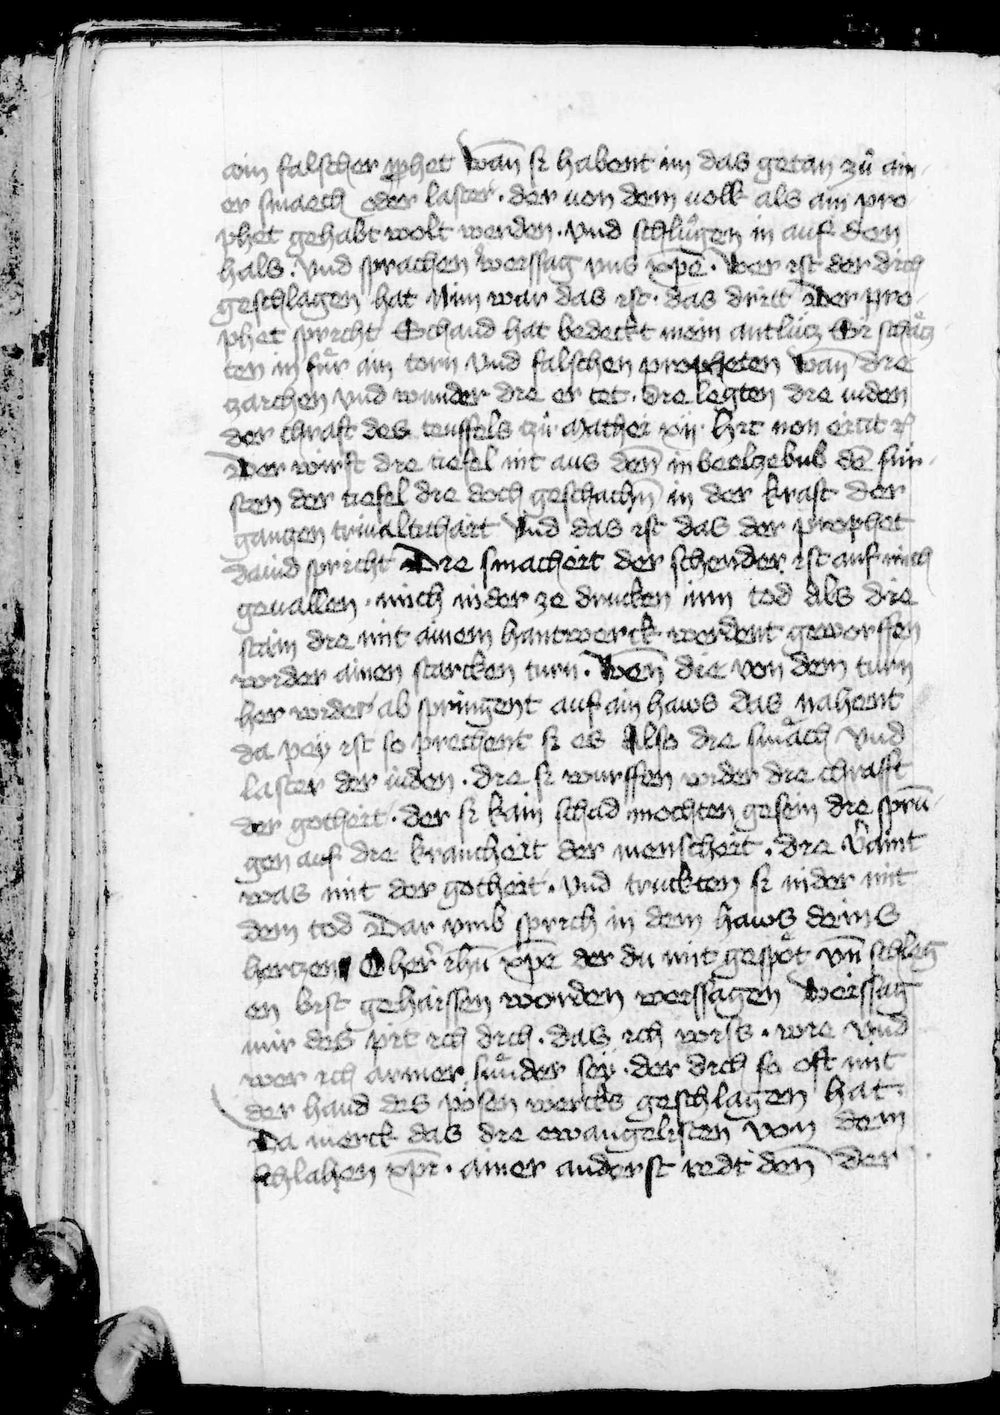 ain falscher p̱phet Wan̄ si habent im das getan zů ain-
er smaech oder laster · der von dem volk als ain pro
phet gehabt wolt werden · Vnd schlůgen in auf den
hals · Vnd sprachen weyssag vns xp̄e · Wer ist der dich
geschlagen hat Nim war das ist · das dritt Der pro-
phet spricht Schand hat bedeckt mein antlütz Sy schätz
ten in für ain torn Vnd falschen propheten Wan̄ die
zaichen vnd wunder die er tet · die legten die iuden
der chraft des teuffels zů · Mathei xij · hic non eicit
Der wirft die tiefel nit aus den̄ in beelzebub dē für-
sten der tiefel die doch geschachn̄ in der kraft der
gantzen triualtichait Vnd das ist das der prophet
dauid spricht Die smachait der schender ist auf mich
geuallen · mich nider ze drucken inn tod Als die
stain die mit ainem hantwerck werdent geworffen
wider ainen starcken turn · Wen̄ die von dem turn
her wider ab springent auf ain haws das nahent
da pey ist so prechent si es Also die smäch Vnd
laster der iuden · die si wurffen wider die chrafft
der gothait · der si kain schad mochten gesein die sprū-
gen auf die kranchait der menschait · die veraint
was mit der gothait · Vnd truckten si nider mit
dem tod Dar vmb sprich in dem haws deins
hertzen O her ihū xp̄e der du mit gespöt vn̄ schleg
en bist gehaissen worden weyssagen Weyssag
mir des pit ich dich · das ich wiss · wie Vnd
wer ich armer sünder sey · der dich so oft mit
der hand des pösen wercks geschlagen hat ·
Da merck das die ewangelisten von dem
schlahen xp̄i · ainer anderst redt den̄ der